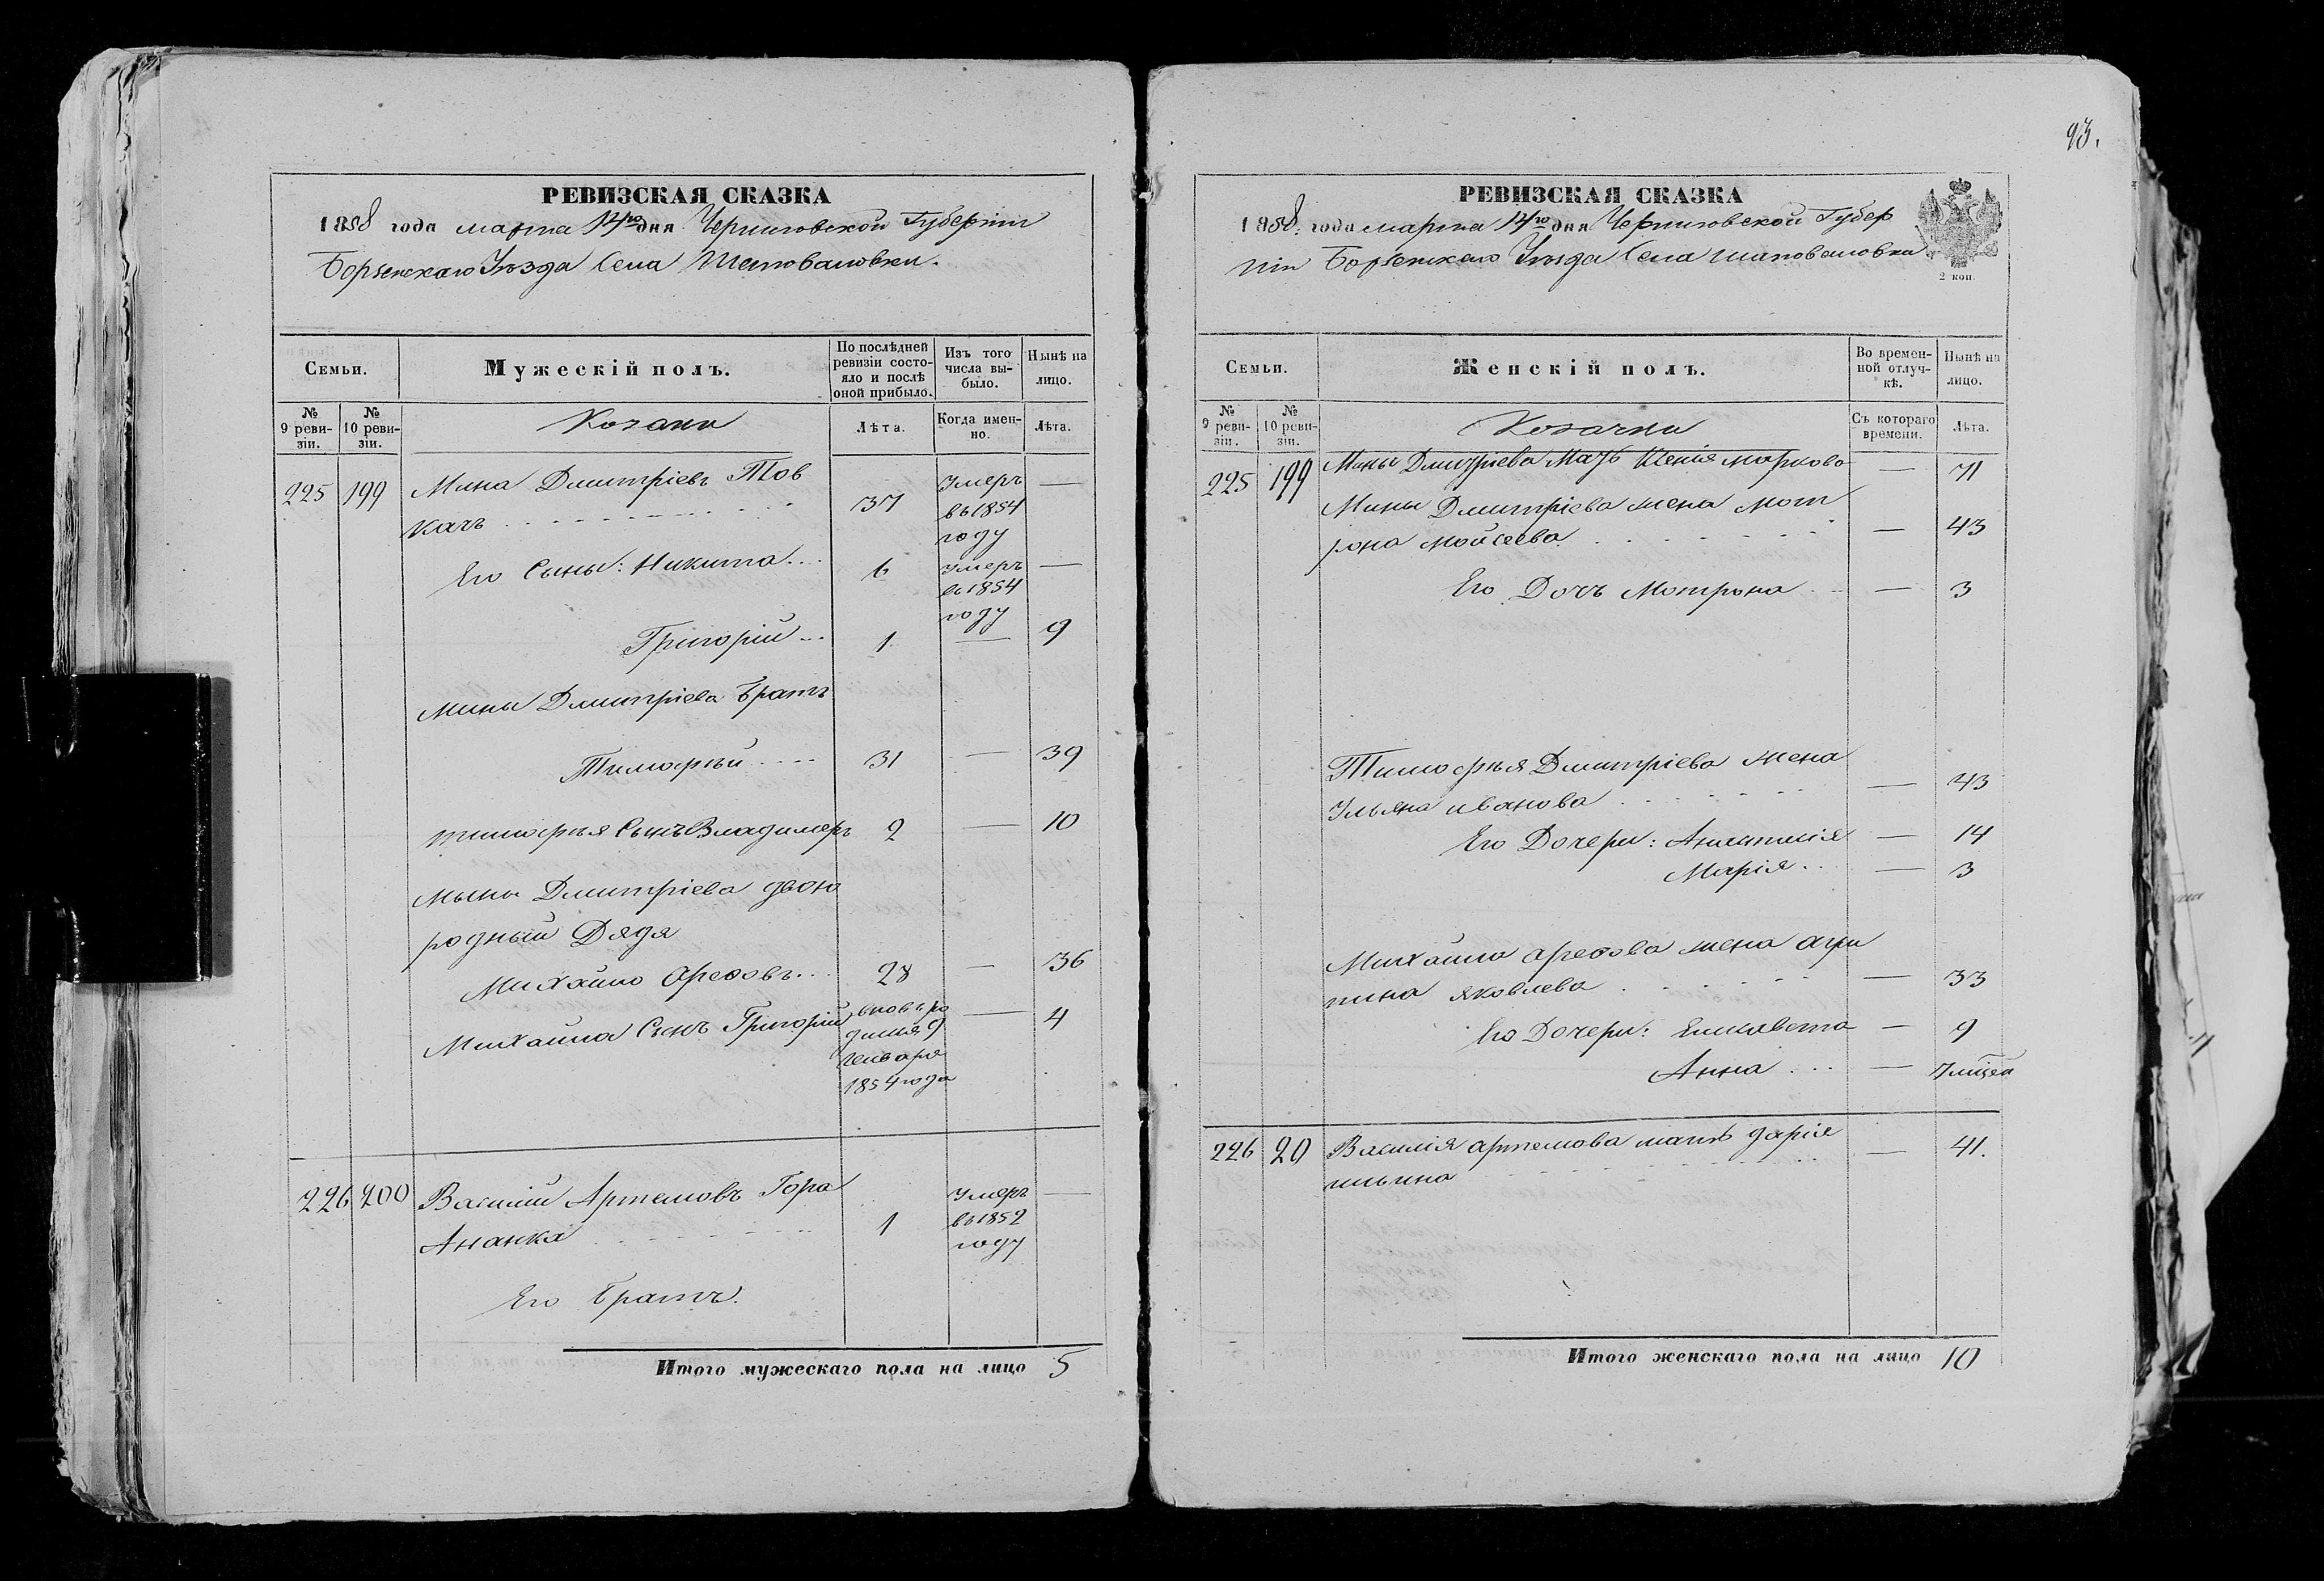 93.
РЕВИЗСКАЯ СКАЗКА
1858 года марта 14го дня Черниговской Губерніи
Борзенскаго Уѣзда Села Шаповаловки.
Семьи.
Мужескій полъ.
По послѣдней ревизіи состояло и послѣ оной прибыло.
Изъ того числа выбыло.
Нынѣ на лицо.
№ 9 ревизіи.
№ 10 ревизіи.
Козаки
Лѣта.
Когда именно.
Лѣта.
225 199 Мина Дмитріевъ Тов
качъ 37 Умеръ въ 1854 году —
Его Сыны: Никита 6 Умеръ въ 1854 году —
Григорій 1 — 9
Мины Дмитріева Братъ
Тимофѣй 31 — 39
Тимофѣя Сынъ Владимеръ 2 — 10
Мины Дмитріева двою
родный Дядя
Михайло Арефовъ 28 — 36
Михайла Сынъ Григорій вновь родился 9 Генваря 1854 года — 4
226 200 Василій Артемовъ Гора
Ананка 1 Умеръ въ 1852 году —
Его Братъ.
Итого мужескаго пола на лицо 5
РЕВИЗСКАЯ СКАЗКА
1858. года марта 14го дня Черниговской Губер
ніи Борзенскаго Уѣзда Села Шаповаловки
2 коп.
Семьи.
Женскій полъ.
Во временной отлучкѣ.
Нынѣ на лицо.
№ 9 ревизіи.
№ 10 ревизіи.
Козачки
Съ котораго времени.
Лѣта.
225 199 Мины Дмитріева Мать Ксенія Маркова — 71
Мины Дмитріева жена Мот
рона Мойсеева — 43
Его Дочь Мотрона — 3
Тимофѣя Дмитріева Жена
Ульяна Иванова — 43
Его Дочери: — 14
Марія — 3
Михайла Арефова жена Агри
пина Яковлева — 33
Его Дочери: Елисавета — 9
Анна — 7 мѣсец
226 20 Василія Артемова мать Дарія
Ильина — 41.
Итого женскаго пола на лицо 10